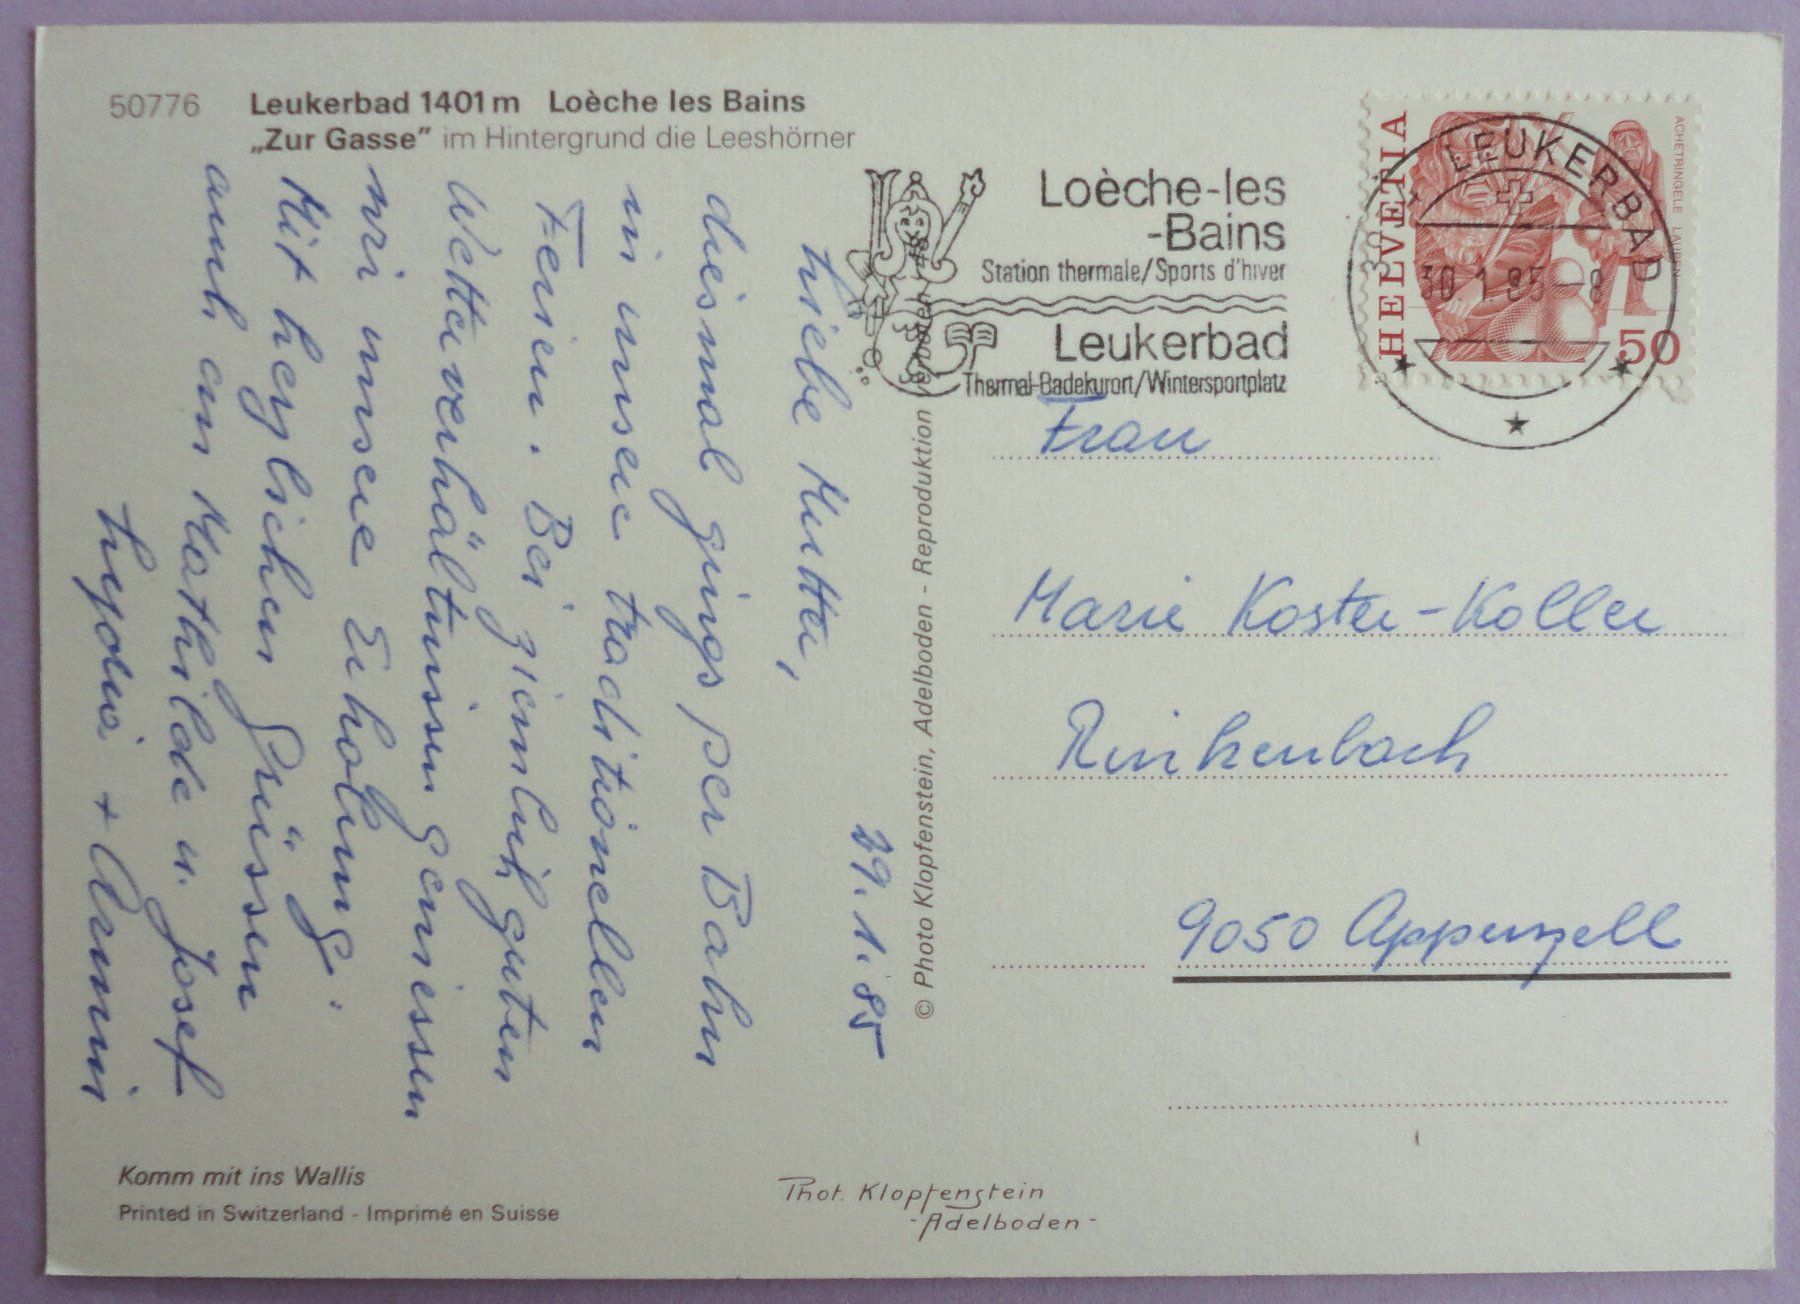 50776 Leukerbad 1401 m Loèche les Bains
„Zur Gasse" im Hintergrund die Leeshörner
Loèche-les
-Bains
Station thermale/Sports d'hiver
Leukerbad
Thermal-Badekurort/Wintersportplatz
HELVETIA
ACHETRINGELE LAUPEN
50
LEUKERBAD
30.1.85-8
29.1.85
Liebe Mutter,
diesmal gings per Bahn
in unsere traditionellen
Ferien. Bei ziemlich guten
Wetterverhältnissen geniessen
wir unsere Erholung.
Mit herzlichen Grüssen
auch an Mathilde u. Josef
+ Armin
Frau
Marie Koster-Koller
Rinkenbach
9050 Appenzell
© Photo Klopfenstein, Adelboden - Reproduktion verboten
Komm mit ins Wallis
Printed in Switzerland - Imprimé en Suisse
Phot. Klopfenstein
- Adelboden -